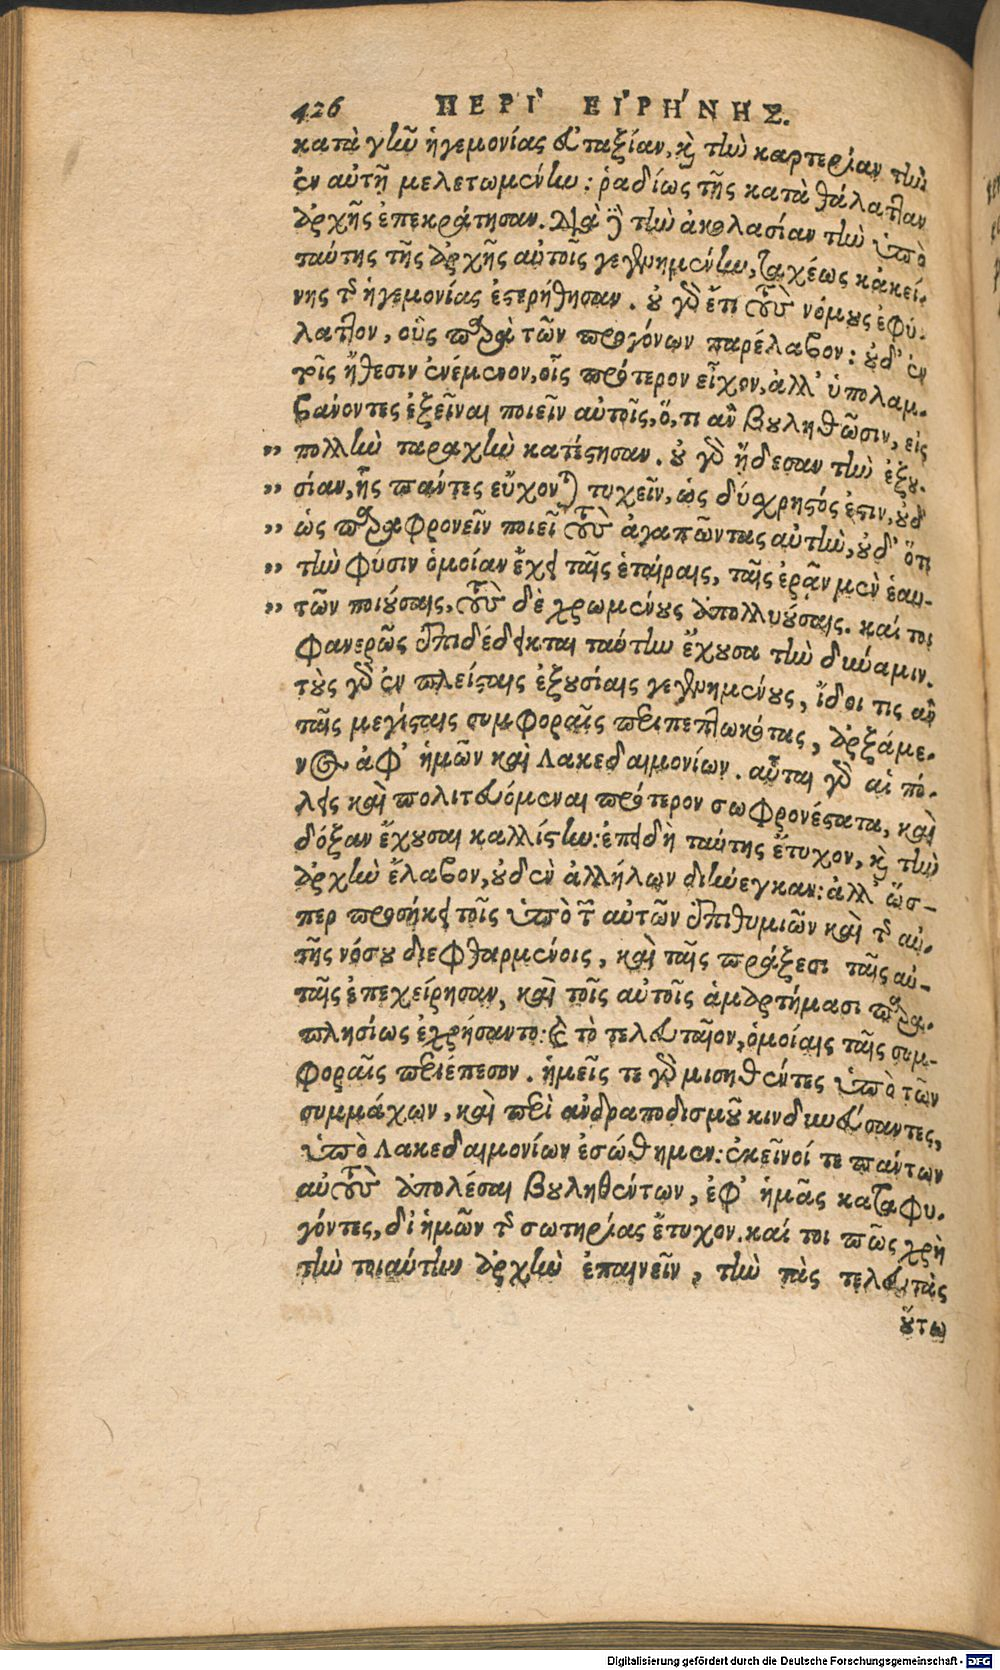 426 ΠΕΡΙ` ΕΙΡΗ´ΝΗΣ.
κατὰ γῆν ἡγεμονίας εὐταξίαν, καὶ τὴν καρτερίαν τὴν
ἐν αὐτῇ μελετωμένην: ῥαδίως τῆς κατὰ θάλατταν
ἀρχῆς ἐπεκράτησαν. διὰ δὲ τὴν ἀκολασίαν τὴν ὑπὸ
ταύτης τῆς ἀρχῆς αὐτοῖς γεγενημένην, ταχέως κἀκεί-
νης τῆς ἡγεμονίας ἐστερήθησαν. οὐ γὰρ ἔτι τοὺς νόμους ἐφύ-
λαττον, οὓς παρὰ τῶν προγόνων παρέλαβον: οὐδ' ἐν
τοῖς ἤθεσιν ἐνέμενον, οἷς πρότερον εἶχον, ἀλλ' ὑπολαμ-
βάνοντες ἐξεῖναι ποιεῖν αὐτοῖς, ὅ, τι ἂν βουληθῶσιν, εἰς
„ πολλὴν ταραχὴν κατέστησαν. οὐ γὰρ ᾔδεσαν τὴν ἐξου-
„ σίαν, ἧς πάντες εὔχονται τυχεῖν, ὡς δύσχρηστός ἐστιν, οὐδ'
„ ὡς παραφρονεῖν ποιεῖ τοὺς ἀγαπῶντας αὐτὴν, οὐδ' ὅτι
„ τὴν φύσιν ὁμοίαν ἔχει ταῖς ἑταίραις, ταῖς ἐρᾶν μὲν ἑαυ-
„ τῶν ποιούσαις, τοὺς δὲ χρωμένους ἀπολλυούσαις. καί τοι
φανερῶς ἐπιδέδεικται ταύτην ἔχουσα τὴν δύναμιν.
τοὺς γὰρ ἐν πλείσταις ἐξουσίαις γεγενημένους, ἴδοι τις ἂν
ταῖς μεγίσταις συμφοραῖς περιπεπτωκότας, ἀρξάμε-
νος ἀφ' ἡμῶν καὶ Λακεδαιμονίων. αὗται γὰρ αἱ πό-
λεις καὶ πολιτευόμεναι πρότερον σωφρονέστατα, καὶ
δόξαν ἔχουσαι καλλίστην: ἐπειδὴ ταύτης ἔτυχον, καὶ τὴν
ἀρχὴν ἔλαβον, οὐδὲν ἀλλήλων διήνεγκαν: ἀλλ' ὥσ-
περ προσήκει τοῖς ὑπὸ τῶν αὐτῶν ἐπιθυμιῶν καὶ τῆς αὐ-
τῆς νόσου διεφθαρμένοις, καὶ ταῖς πράξεσι ταῖς αὐ-
ταῖς ἐπεχείρησαν, καὶ τοῖς αὐτοῖς ἁμαρτήμασι παρα-
πλησίως ἐχρήσαντο: καὶ τὸ τελευταῖον, ὁμοίαις ταῖς συμ-
φοραῖς περιέπεσον. ἡμεῖς τε γὰρ μισηθέντες ὑπὸ τῶν
συμμάχων, καὶ περὶ ἀνδραποδισμοῦ κινδυνεύσαντες,
ὑπὸ Λακεδαιμονίων ἐσώθημεν: ἐκεῖνοί τε πάντων
αὐτοὺς ἀπολέσαι βουληθέντων, ἐφ' ἡμᾶς καταφυ-
γόντες, δι' ἡμῶν τῆς σωτηρίας ἔτυχον. καί τοι πῶς χρὴ
τὴν τοιαύτην ἀρχὴν ἐπαινεῖν, τὴν τὰς τελευτὰς
οὕτω
Digitalisierung gefördert durch die Deutsche Forschungsgemeinschaft - DFG